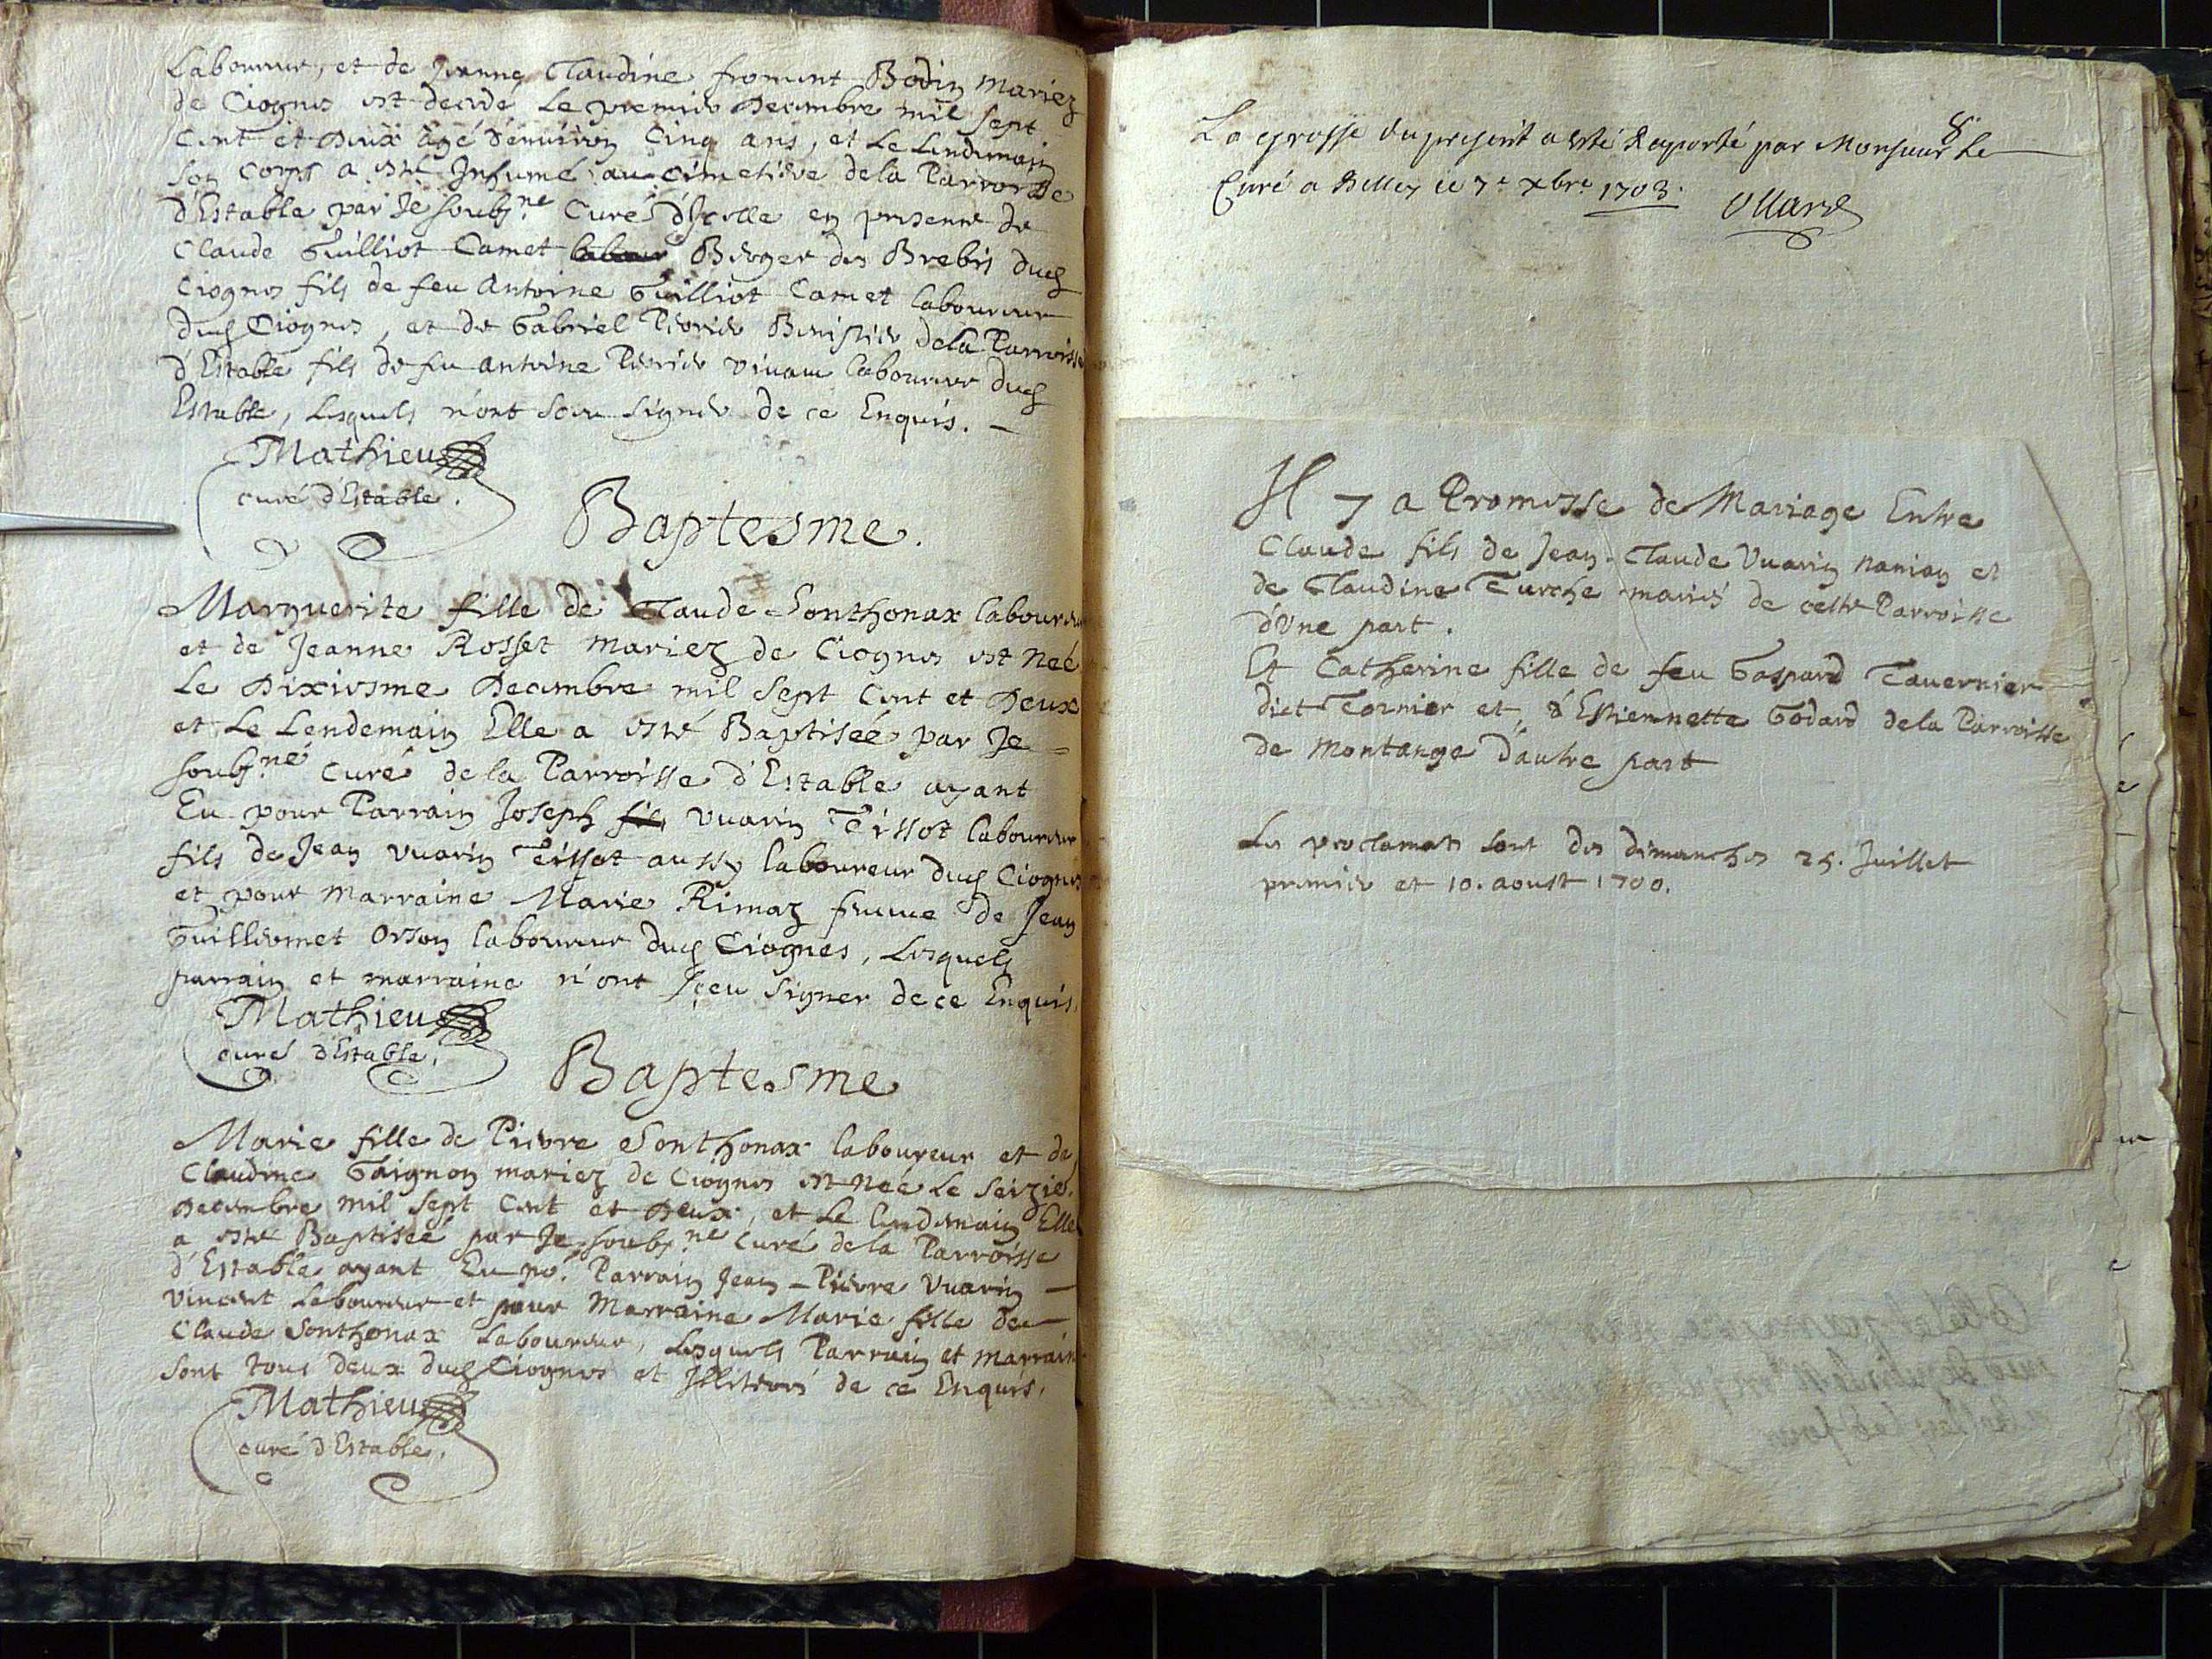 Laboureur, et de Jeanne Claudine froment Bodin Mariez
de Ciognes est decedé Le premier Decembre mil sept
Cent et Deux agé d'environ Cinq ans, et Le Lendemain
son Corps a esté Inhumé au cimetiere de la Parroisse
d'Estable par Je soubs.né Curé d'Icelle en presence de
Claude Guilliot Camet Berger des Brebis dud
Ciognes fils de feu Antoine Guilliot Camet laboureur
dud Ciognes, et de Gabriel de la Parroisse
d'Estable fils de feu Antoine laboureur dud
Estable, Lesquels n'ont sceu signer de ce Enquis.
Mathieu
curé d'Estable.
Baptesme.
Marguerite fille de Claude Sonthonax laboureur
et de Jeanne Rosset mariez de Ciognes est Neé
Le Dixiesme Decembre mil Sept Cent et Deux
et Le Lendemain Elle a esté Baptiseé par Je
soubs.né Curé de la Parroisse d'Estable ayant
Eu pour Parrain Joseph fils Vuarin Tissot laboureur
fils de Jean Vuarin Tissot aussy laboureur dud Ciognes
et pour Marraine Marie Rimaz femme de Jean
Guilliermet Orson laboureur dud Ciognes, Lesquels
parrain et marraine n'ont sçeu signer de ce Enquis.
Mathieu
curé d'Estable.
Baptesme
Marie fille de Pierre Sonthonax laboureur et de
Claudine Gaignon mariez de Ciognes est Neé Le Seizie.
Decembre mil Sept Cent et Deux, et Le lendemain Elle
a esté Baptiseé par Je soubs.né Curé de la Parroisse
d'Estable ayant Eu po.r Parrain Jean-Pierre Vuarin
Vincent Laboureur et pour Marraine Marie fille de
Claude Sonthonax Laboureur, Lesquels Parrain et Marraine
sont tous deux dud Ciognes et Illiterés de ce Enquis.
Mathieu
curé d'Estable.
8
La grosse du present a esté Raporté par Monsieur Le
Curé a Belley le 7e xbre 1703.
Il y a Promesse de Mariage Entre
Claude fils de Jean-Claude Vuarin naniau et
de Claudine Turche mariés de cette Parroisse
d'Une part.
Et Catherine fille de feu Gaspard Tavernier
dict Tornier et, d'Estiennette Godard de la Parroisse
de Montange d'autre part
Les proclamats sont des dimanches 25. Juillet
premier et 10. aoust 1700.